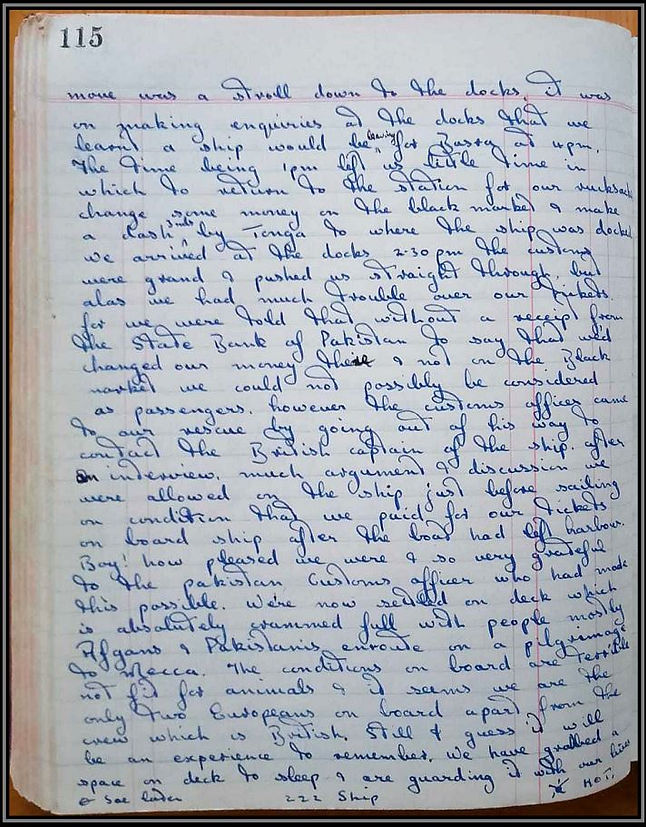 115
move was a stroll down to the docks, it was
on making enquiries at the docks that we
learnt a ship would be leaving for Basra at 4pm.
The time being 1pm left us little time in
which to return to the station for our rucksack
change some money on the black market & make
a dash by Tonga to where the ship was docked
we arrived at the docks 2-30 pm the customs
were grand & pushed us straight through, but
alas we had much trouble over our tickets.
for we were told that without a receip from
the State Bank of Pakistan to say that we'd
changed our money there & not on the Black
market we could not possibly be considered
as passengers. however the customs officer came
to our rescue by going out of his way to
contact the British captain of the ship. after
an interview, much argument & discussion we
were allowed on the ship just before sailing
on condition that we paid for our tickets
on board ship after the boat had left harbour.
Boy! how pleased we were & so very grateful
to the pakistan Customs officer who had made
this possible. We're now settled on deck which
is absolutely crammed full with people mostly
Afgans & Pakistanis enroute on a pilgramage
to Mecca. The conditions on board are terrible
not fit for animals & it seems we are the
only two Europeans on board apart from the
crew which is British. Still I guess it will
be an experience to remember. We have grabbed a
space on deck to sleep & are guarding it with our lives
see later 222 Ship HOT!